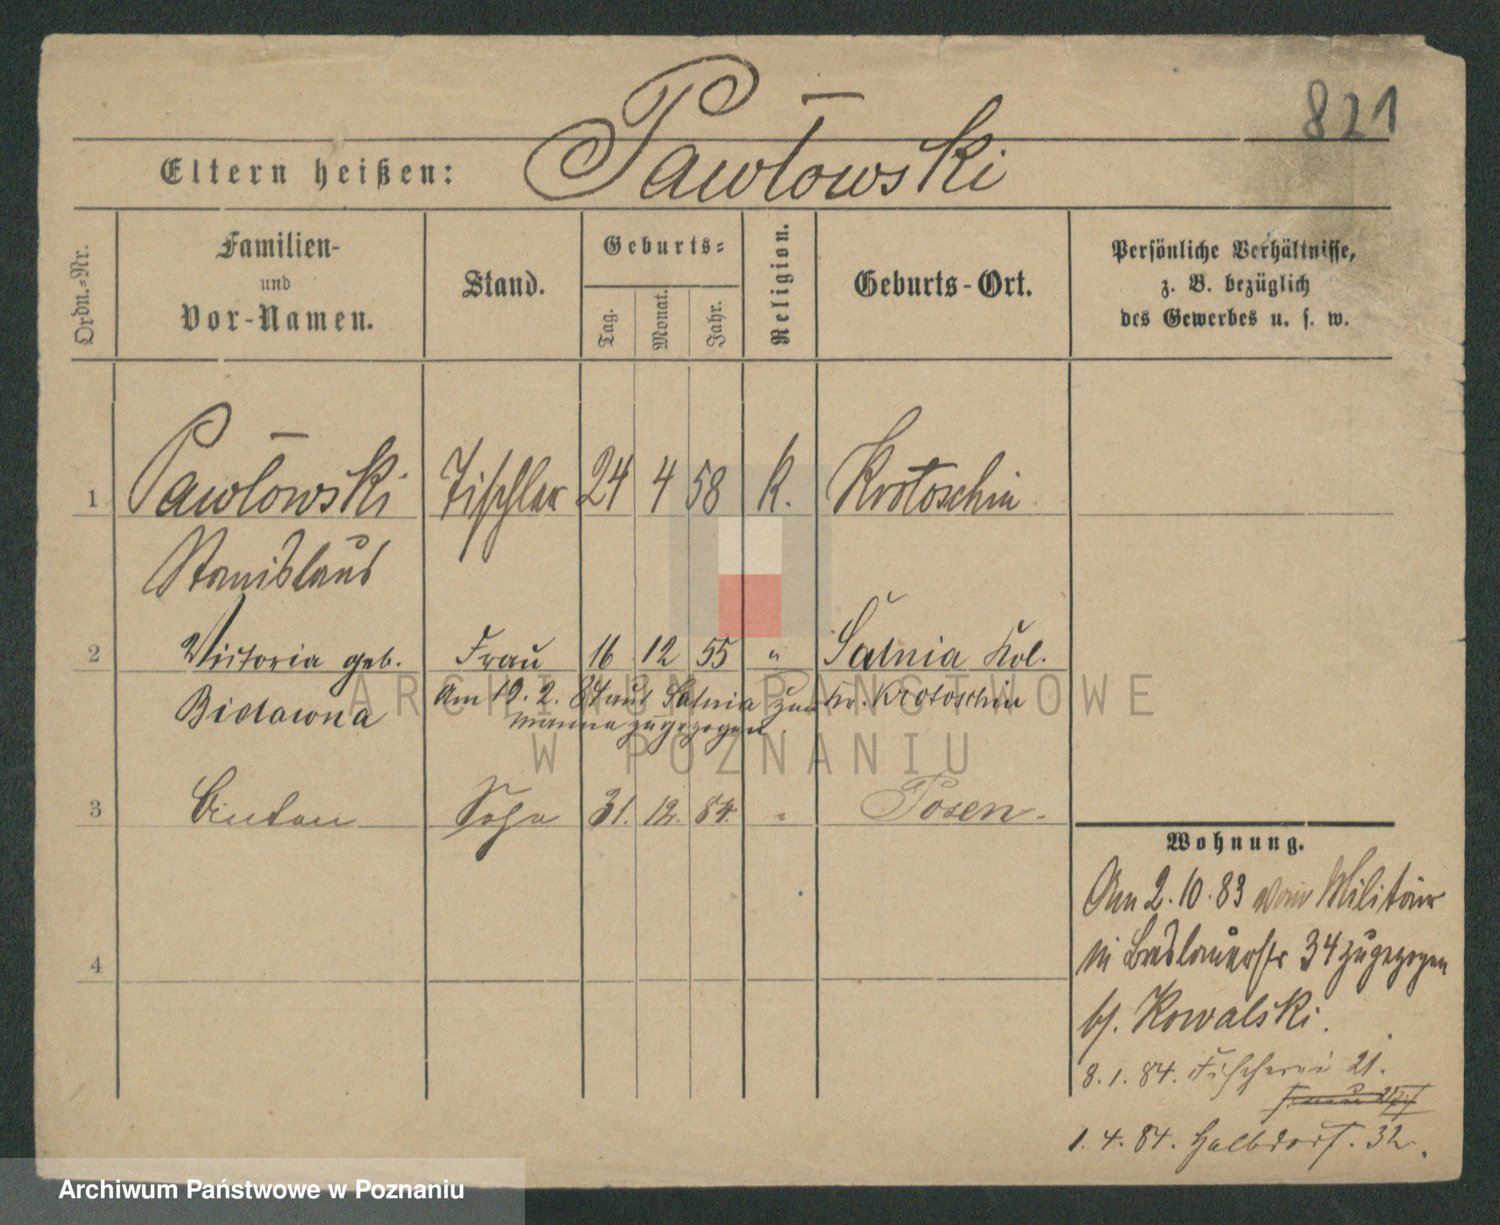 821
Eltern heißen: Pawłowski
Ordn.-Nr.
Familien-
und
Vor-Namen.
Stand.
Geburts-
Tag.
Monat.
Jahr.
Religion.
Geburts-Ort.
Persönliche Verhältnisse,
z. B. bezüglich
des Gewerbes u. s. w.
1 Pawłowski Tischler 24 4 58 K. Krotoschin
Stanislaus
2 Victoria geb. Frau 16 12 55 " Salnia Kol.
Am 19. 2. 84 aus Salnia zum Kr. Krotoschin
Manne zugezogen
3 Anton Sohn 31. 12. 84. " Posen.
4
Wohnung.
Am 2. 10. 83 vom Militair
in Breslauerstr 34 zugezogen
bj. Kowalski.
8. 1. 84. Fischerei 21.
1. 4. 84. Halbdorf. 32.
ARCHIWUM PAŃSTWOWE
W POZNANIU
Archiwum Państwowe w Poznaniu